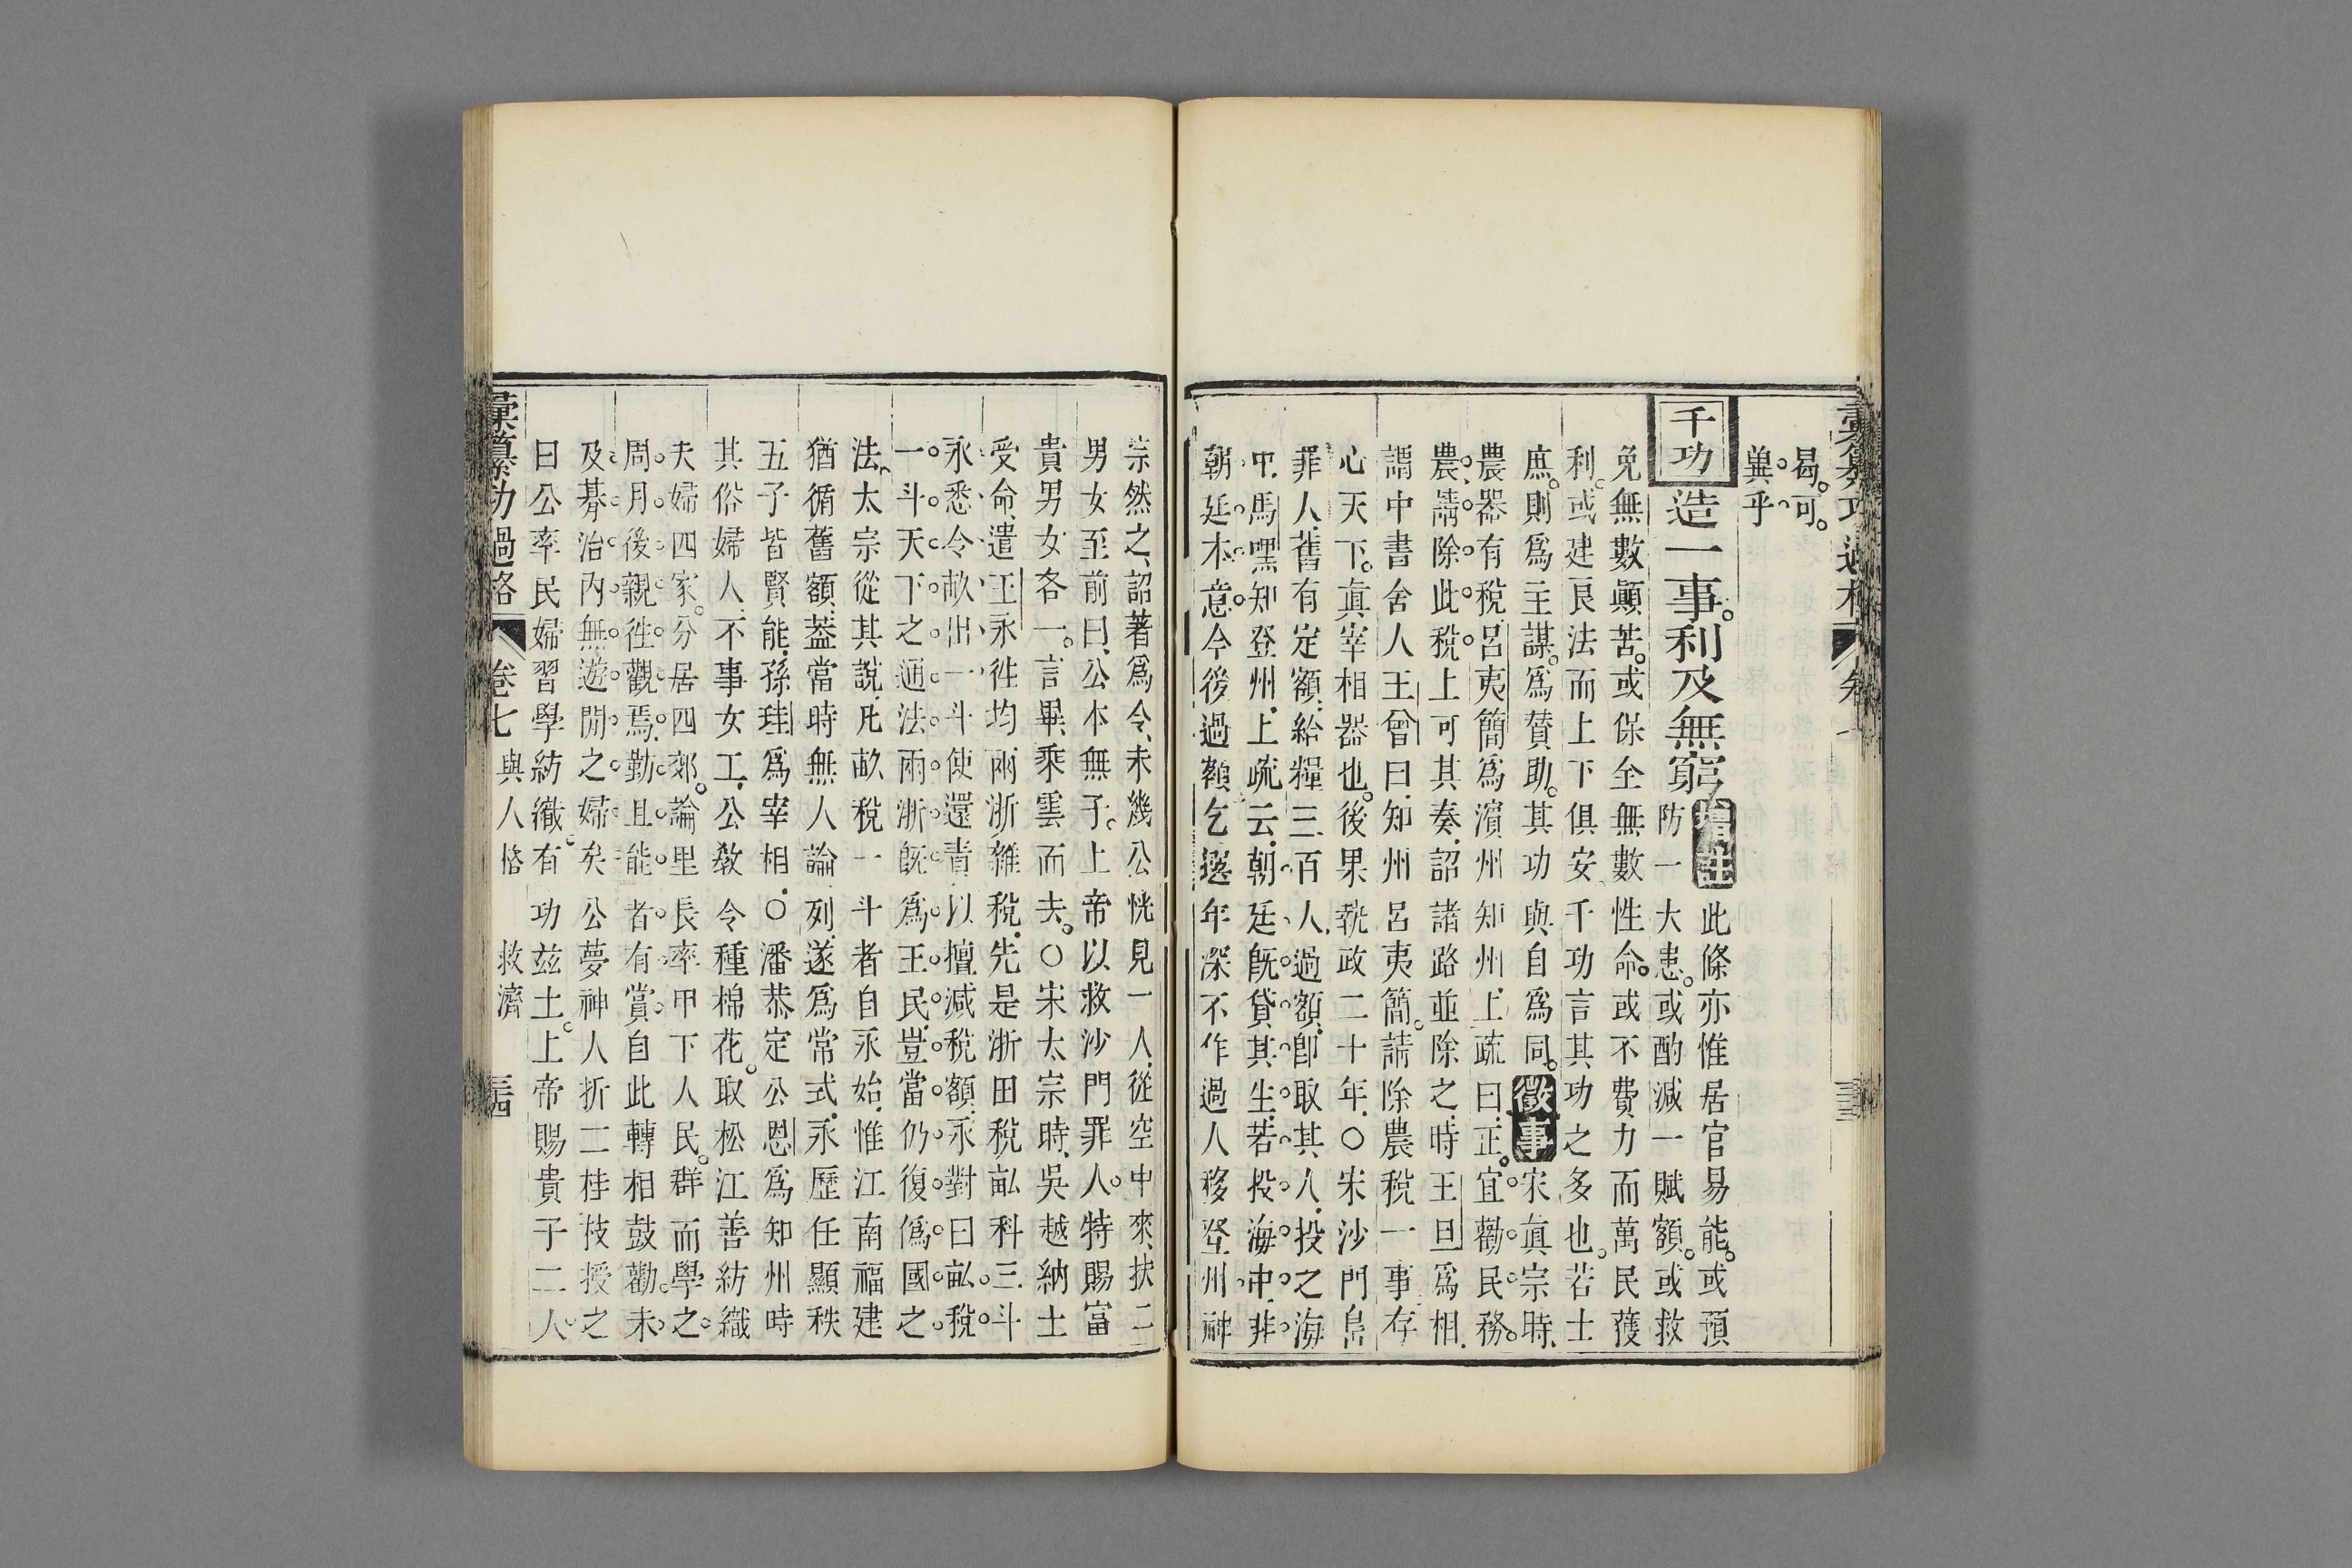 彙纂功過格
曷可
冀乎
千功
造一事利及無窮
增註
此條亦惟居官易能或預
防一大患或酌減一賦額或救
免無數顚苦或保全無數性命或不費力而萬民獲
利或建良法而上下俱安千功言其功之多也若士
庶則爲主謀爲贊助其功與自爲同徵事宋眞宗時
農器有稅呂夷簡爲濱州知州上疏曰正宜勸民務
農請除此稅上可其奏詔諸路並除之時王旦爲相
謂中書舍人王曾曰知州呂夷簡請除農稅一事存
心天下眞宰相器也後果執政二十年○宋沙門島
罪人舊有定額給糧三百人過額卽取其人投之海
中馬嘿知登州上疏云朝廷旣貸其生若投海中非
朝廷本意今後過額乞選年深不作過人移登州神
宗然之詔著爲令未幾公恍見一人從空中來挾二
男女至前曰公本無子上帝以救沙門罪人特賜富
貴男女各一言畢乘雲而去○宋太宗時吳越納土
受命遣王永徃均兩浙雜稅先是浙田稅畝科三斗
永悉令畝出一斗使還責以擅減稅額永對曰畝稅
一斗天下之通法兩浙旣爲王民豈當仍復僞國之
法太宗從其說凡畝稅一斗者自永始惟江南福建
猶循舊額葢當時無人論列遂爲常式永歷任顯秩
五子皆賢能孫珪爲宰相○潘恭定公恩爲知州時
其俗婦人不事女工公敎令種棉花取松江善紡織
夫婦四家分居四郊論里長率甲下人民群而學之
周月後親徃觀焉勤且能者有賞自此轉相鼓勸未
及朞治內無遊閒之婦矣公夢神人折二桂枝授之
曰公率民婦習學紡織有功玆土上帝賜貴子二人
彙纂功過格 卷七 與人格 救濟